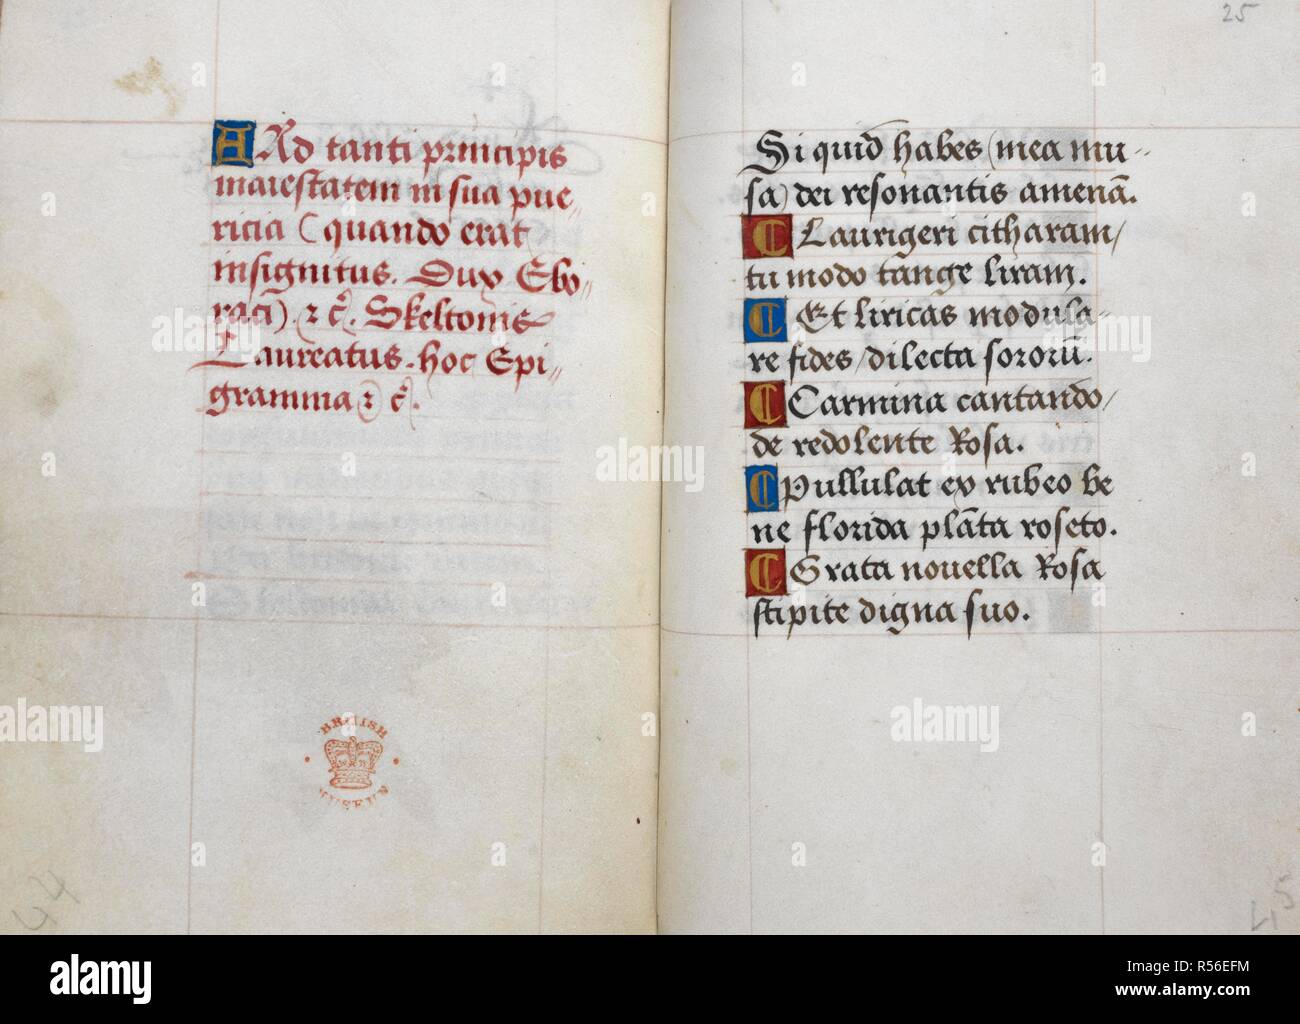 25
A Ad tanti principis
maiestatem in sua pue„
ricia (quando erat
insignitus. Dux Ebo„
racī). ⁊ c̄. Skeltonis
Laureatus. hoc Epi„
gramma ⁊ c̄.
BRITISH
MUSEUM
44
Si quid habes (mea mu„
sa) dei resonantis amenā.
C Laurigeri citharam/
tu modo tange liram.
C Et liricas modula„
re fides/dilecta sororū.
C Carmina cantando/
de redolente Rosa.
C Pullulat ex rubeo be
ne florida plāta roseto.
C Grata nouella Rosa
stipite digna suo.
45
alamy
alamy
alamy stock photo
Image ID: R56EFM
www.alamy.com